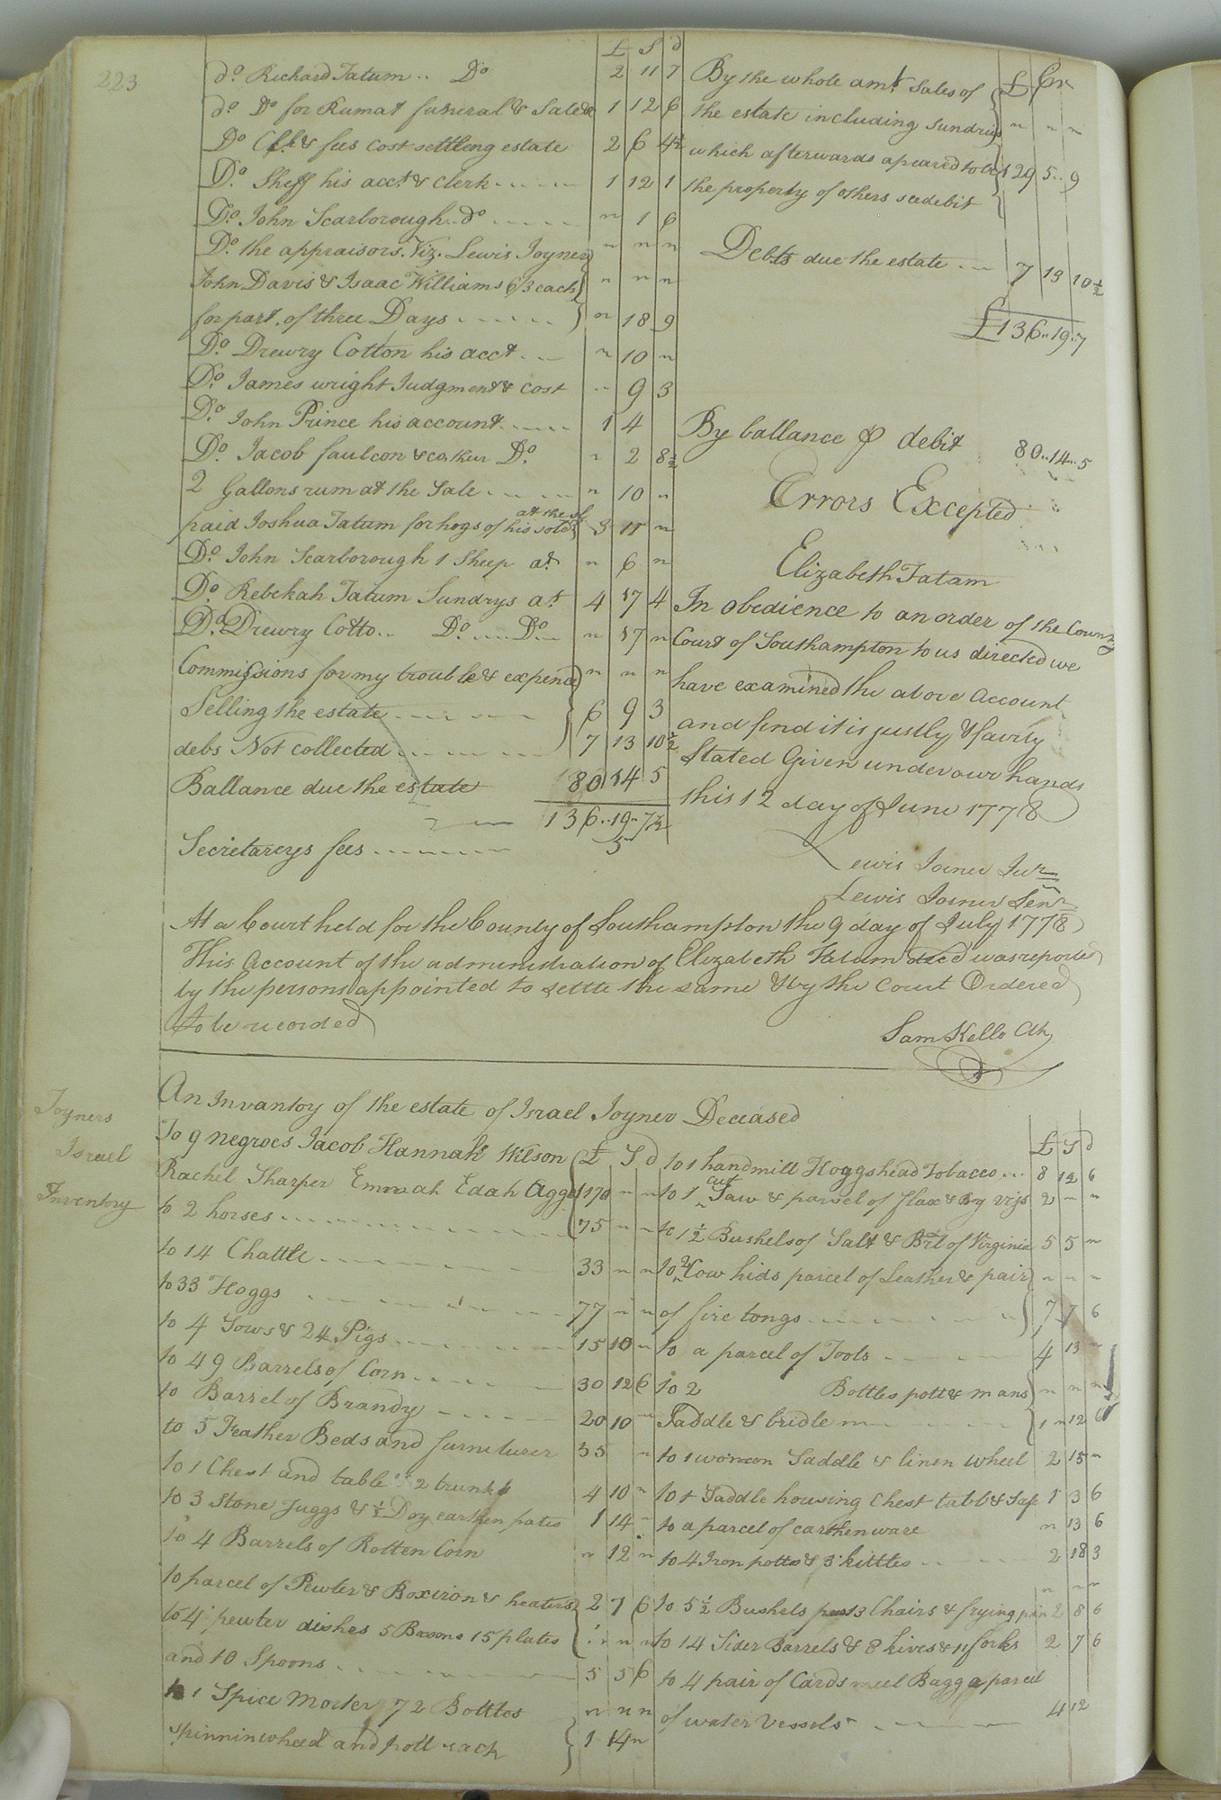 223
£ S d
do Richard Tatum .. Do 2 11 7
do Do for Rumat funeral & Sale 1 12 6
Do Clk & fees cost settleng estate 2 6 4½
Do Sheff his acct & clerk 1 12 1
Do John Scarborough do " 1 6
Do the appraisors. Viz. Lewis Joyner " " "
John Davis & Isaac Williams 6/3 each " " "
for part. of three Days " 18 9
Do Drewry Cotton his acct " 10 "
Do James wright Judgment & cost " 9 3
Do John Prince his account 1 4
Do Jacob faulcon Do " 2 8½
2 Gallons rum at the Sale " 10 "
at the sl
paid Joshua Tatum for hogs of his sold 3 11 "
Do John Scarborough 1 Sheep at " 6 "
Do Rebekah Tatum Sundrys at 4 17 4
Do Drewry Cotto.. Do .... Do " 17 "
Commissions for my trouble & expence " " "
Selling the estate 6 9 3
debs Not collected 7 13 10½
Ballance due the estate 80 14 5
136..19..7½
Secretareys fees 5
£ Cr
By the whole amt Sales of
the estate including sundrys " " "
which afterwards apeared to be 129 5..9
the property of others see debit
Debts due the estate 7 13 10½
£136..19..7
By ballance ⅌ debit 80..14..5
Errors Excepted
Elizabeth Tatam
In obedience to an order of the County
Court of Southampton to us directed we
have examined the above account
and find it is justly & fairly
Stated Given under our hands
this 12 day of June 1778
Lewis Joiner Junr
Lewis Joiner Senr
At a Court held for the County of Southampton the 9 day of July 1778
This Account of the administration of Elizabeth Tatum decd was reported
by the persons appointed to settle the same & by the Court Ordered
to be recorded
Sam Kello Clk
Joyners
Israel
Inventory
An Invantoy of the estate of Israel Joyner Deceased
To 9 negroes Jacob Hannah Wilson £ S d
Rachel Sharper Emmah Edah Agge 170 " "
to 2 horses 75 " "
to 14 Chattle 33 " "
to 33 Hoggs 77 " "
to 4 Sows & 24 Pigs 15 10 "
to 49 Barrels of Corn 30 12 6
to Barrel of Brandy 20 10 "
to 5 Feather Beds and furniturer 35 "
to 1 Chest and table 2 trunks 4 10 "
to 3 Stone Juggs & ½ Doz earthen pates 1 14 "
to 4 Barrels of Rotten Corn " 12 "
to parcel of Pewter & Boxiron & heaters 2 7 6
to 4 pewter dishes 5 Basons 15 plates " " "
and 10 Spoons 5 5 6
to 1 Spice Morter 72 Bottles " " "
spinninwheel and pott rack 1 14 "
£ S d
to 1 handmill Hoggshead Tobacco 8 12 6
cut
to 1 Saw & parcel of flax & 2 " "
to 1½ Bushels of Salt & Brl of Virginia 5 5 "
to 2 Cow hids parcel of Leather & pair " " "
of fire tongs 7 7 6
to a parcel of Tools 4 13 "
to 2 Bottles pott & mans " " "
Saddle & bridle 1 12 6
to 1 woman Saddle & linen wheel 2 15 "
to 1 Saddle housing Chest table & 1 3 6
to a parcel of earthenware " 13 6
to 4 Iron potts & 3 kittles 2 18 3
" "
to 5½ Bushels 3 Chairs & frying pan 2 8 6
to 14 Sider Barrels & 8 hives & 11 forks 2 7 6
to 4 pair of Cards meel Bagg a parcel
of water Vessels 4 12